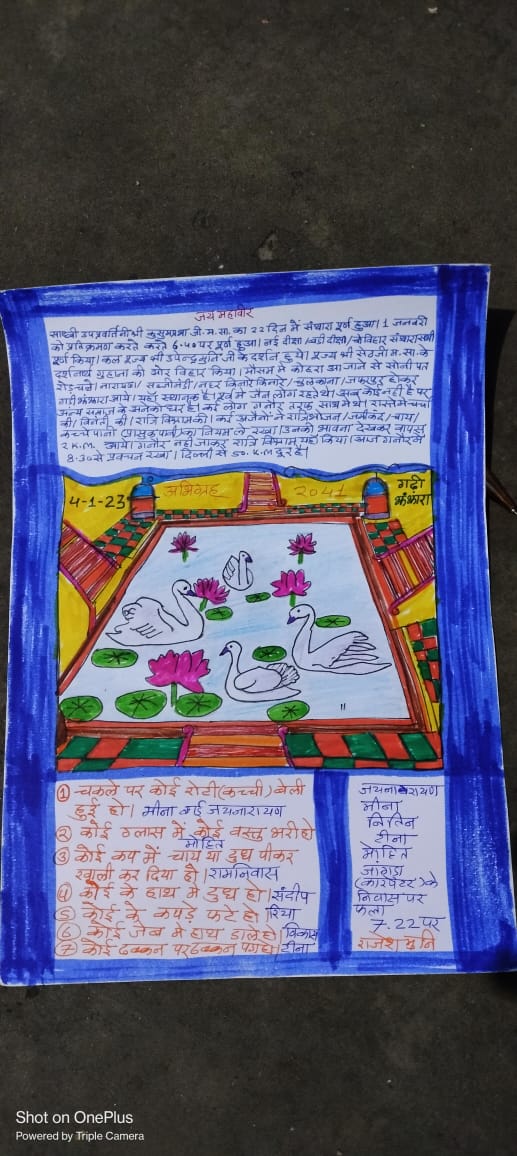 जय महावीर
साध्वी उपप्रवर्तिनी श्री कुसुमप्रभा जी म.सा. का 22 दिन में संथारा पूर्ण हुआ। 1 जनवरी
को प्रतिक्रमण करते करते 6.40 पर पूर्ण हुआ। नई दीक्षा /बड़ी दीक्षा /चोविहार संथारा सभी
पूर्ण किया। कल पूज्य श्री उपेन्द्रमुनि जी के दर्शन हुये। पूज्य श्री सेठजी म.सा. के
दर्शनार्थ गुहाना की ओर विहार किया। मौसम में कोहरा आ जाने से सोनीपत
रोड चले। नारायणा। सब्जीमंडी/नहर किनारे किनारे/ चुलकाना/ होकर
गढ़ी झंझारा आये। यहाँ स्थानक है। पूर्व में जैन लोग रहते थे। अब कोई नहीं है पर
अन्य समाज के अनेको घर है। कई लोग गनौर तरफ साथ में थे। रास्ते में चर्चा
की/ विनती की/ रात्रि विश्राम की। कई अजैनो ने रात्रिभोजन/जमीकंद/चाय/
कच्चे पानी का नियम ले रखा। उनकी भावना देखकर वापस
2 K.M. आये। गनौर नहीं जाकर रात्रि विश्राम यहाँ किया। आज गनौर में
8.30 से प्रवचन रखा। दिल्ली से 50. K.M दूर है।
4-1-23 अभिग्रह 2041 गढ़ी
झंझारा
① चकले पर कोई रोटी(कच्ची) बेली
हुई हो। मीना बाई जयनारायण
② कोई ग्लास में कोई वस्तु भरी हो
मोहित
③ कोई कप में चाय या दुध पीकर
खाली कर दिया हो।रामनिवास
④ कोई के हाथ में दुध हो।संदीप
⑤ कोई के कपड़े फटे हो।रिया
⑥ कोई जेब में हाथ डाले हो।विकास
⑦ कोई ढक्कन पर ढक्कन। टीना
जयनारायण
मीना
नितिन
टीना
मोहित
जांगड़ा
(कारपेंटर) के
निवास पर
फला
7.22 पर
राजेश मुनि
Shot on OnePlus
Powered by Triple Camera